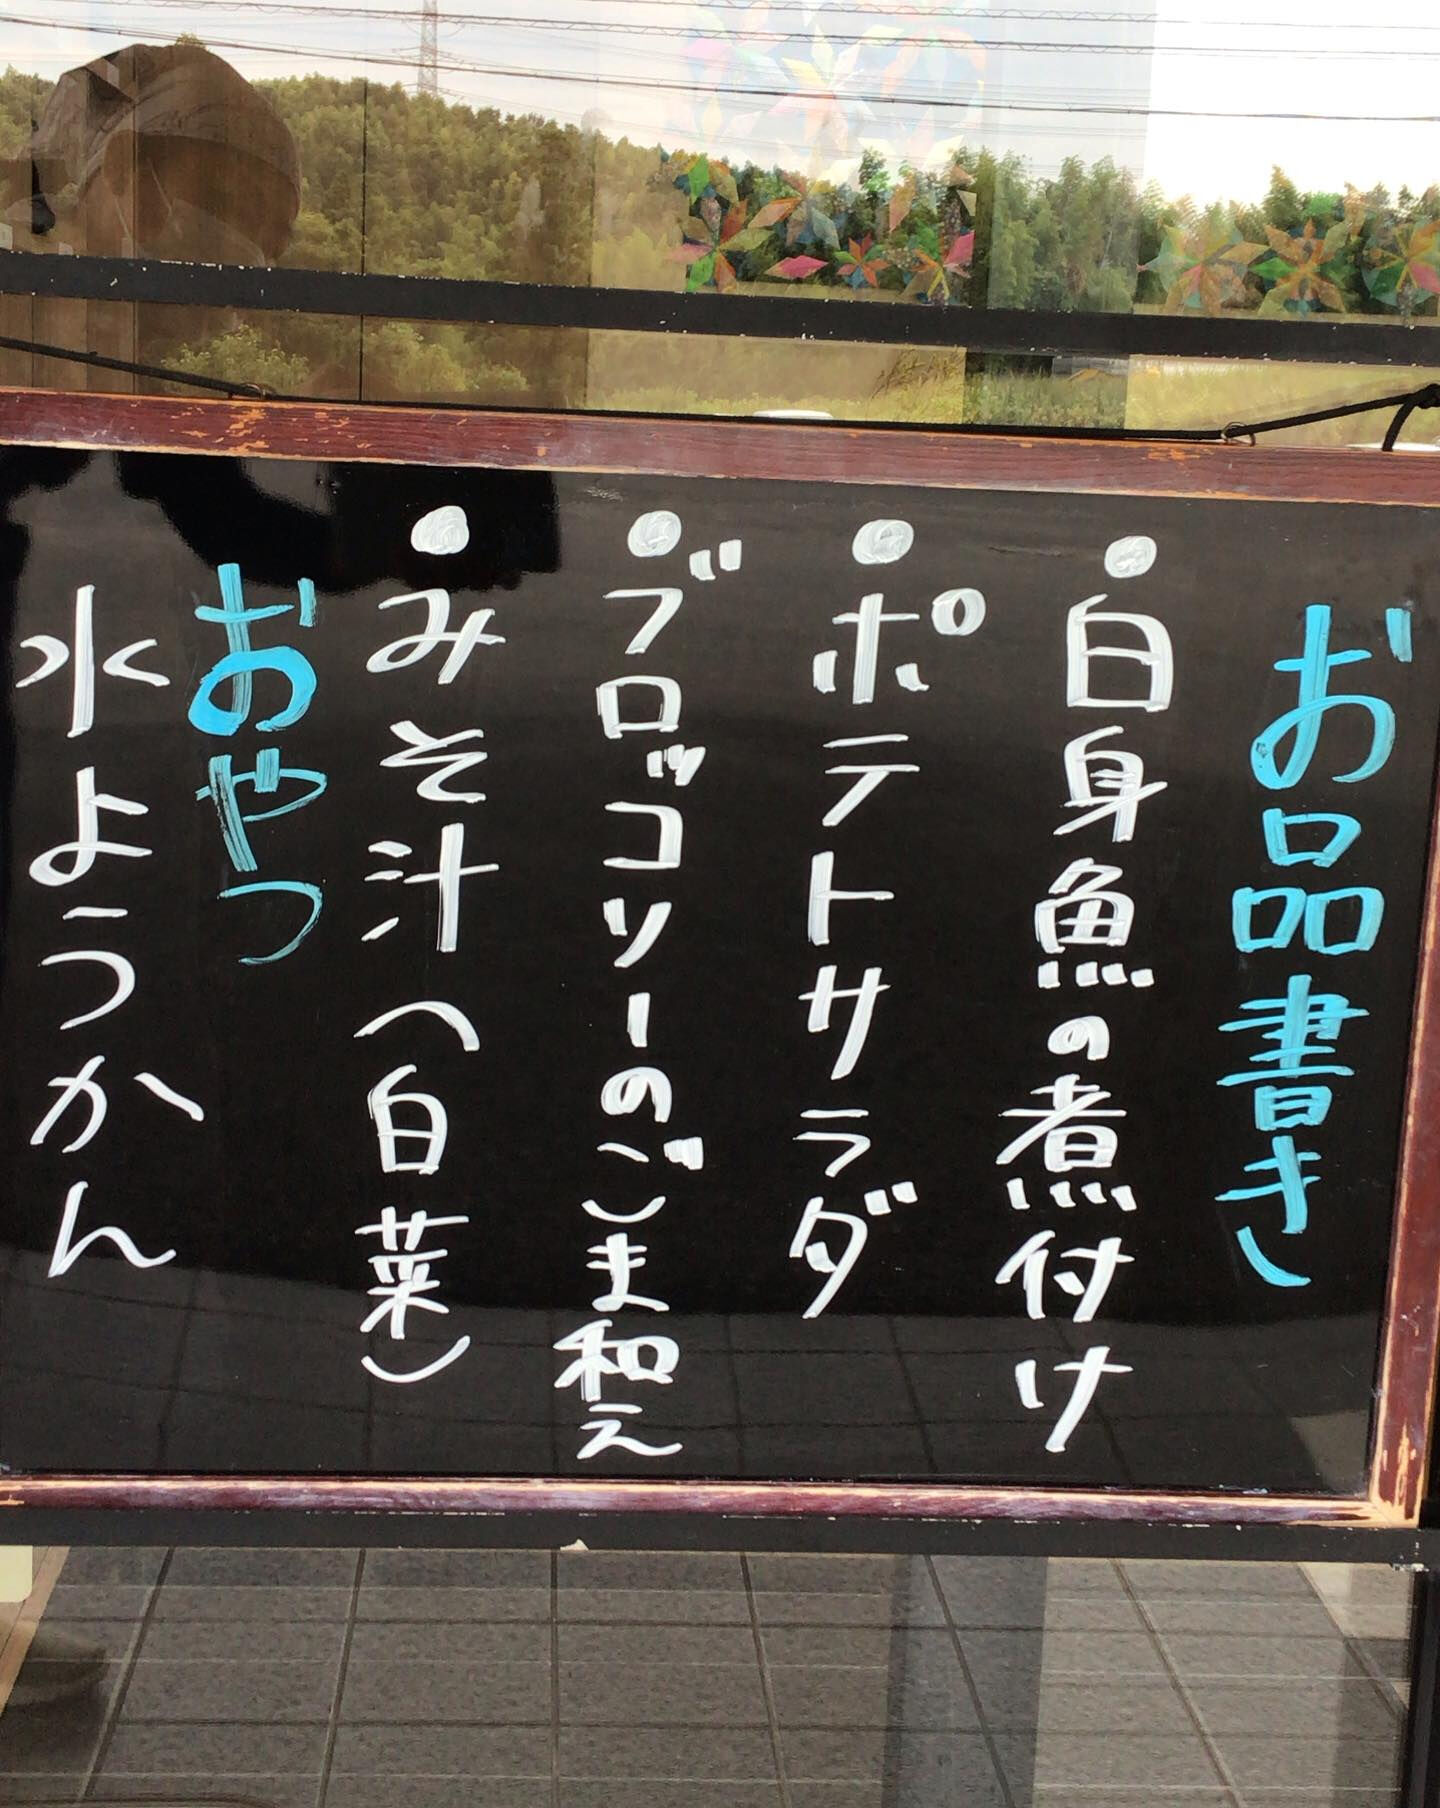 お品書き
・白身魚の煮付け
・ポテトサラダ
・ブロッコリーのごま和え
・みそ汁(白菜)
おやつ
水ようかん